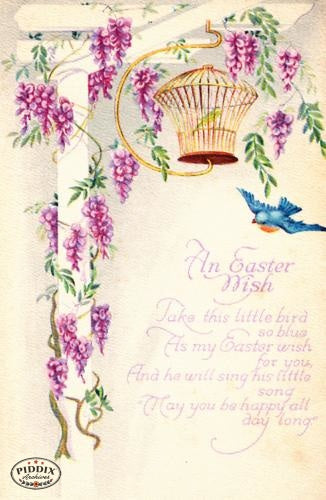 An Easter
Wish
Take this little bird
so blue
As my Easter wish
for you,
And he will sing his little
song
"May you be happy all
day long."
PIDDIX
Archives